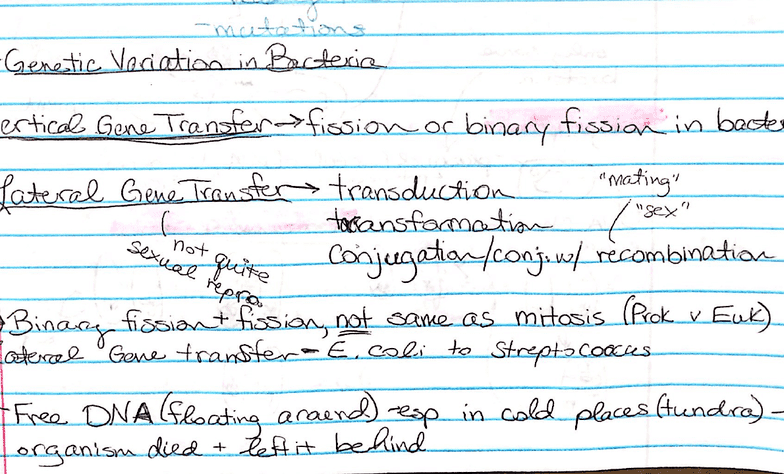 -mutations
Genetic Variation in Bacteria
ertical Gene Transfer→fission or binary fission in bacte
Lateral Gene Transfer→ transduction
"mating"
"sex"
transformation
conjugation/conj. w/ recombination
not quite
sexual repro.
Binary fission + fission, not same as mitosis (Prok v Euk)
ateral Gene transfer - E. coli to Streptococcus
-Free DNA (floating around) -esp in cold places (tundra) -
organism died + left it behind